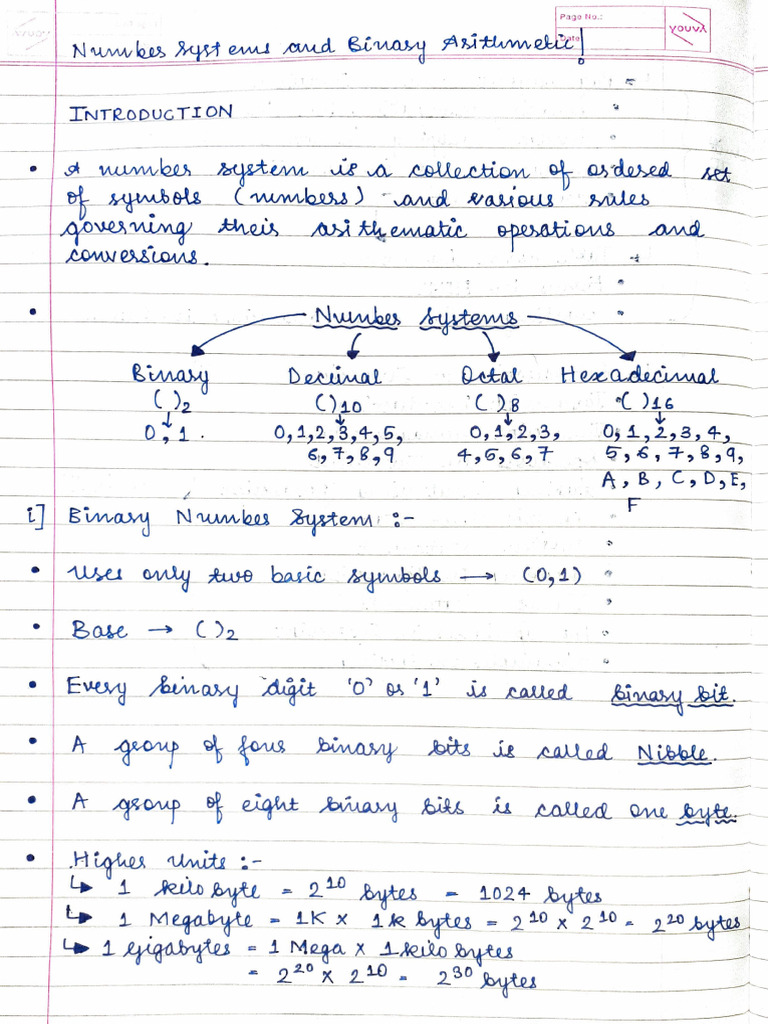 Page No.:
Date
YOUVA
Number Systems and Binary Arithmetic!
INTRODUCTION
• A number system is a collection of ordered set
of symbols (numbers) and various rules
governing their arithematic operations and
conversions.
• Number Systems
Binary Decimal Octal Hexadecimal
( )₂ ( )10 ( )8 ( )16
0, 1. 0,1,2,3,4,5, 0,1,2,3, 0,1,2,3,4,
6,7,8,9 4,5,6,7 5,6,7,8,9,
A, B, C, D, E,
F
i] Binary Number System :-
• Uses only two basic symbols → (0,1)
• Base → ( )₂
• Every binary digit '0' or '1' is called binary bit.
• A group of four binary bits is called Nibble.
• A group of eight binary bits is called one byte.
• Higher Units :-
↳ 1 kilo byte = 2¹⁰ bytes = 1024 bytes
↳ 1 Megabyte = 1K × 1k bytes = 2¹⁰ × 2¹⁰ = 2²⁰ bytes
↳ 1 Gigabytes = 1 Mega × 1 kilo bytes
= 2²⁰ × 2¹⁰ = 2³⁰ bytes